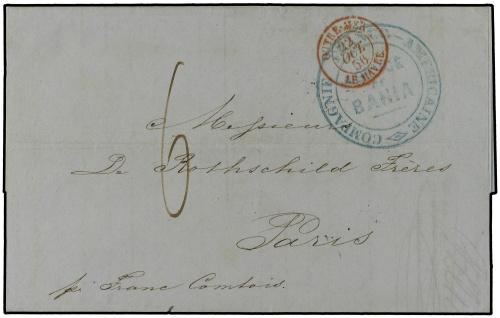 OUTRE-MER
22
OCT.
56
LE HAVRE
COMPAGNIE AMERICAINE
BAHIA
Messieurs
De Rothschild Frères
6
Paris
p. Franc Comtois.